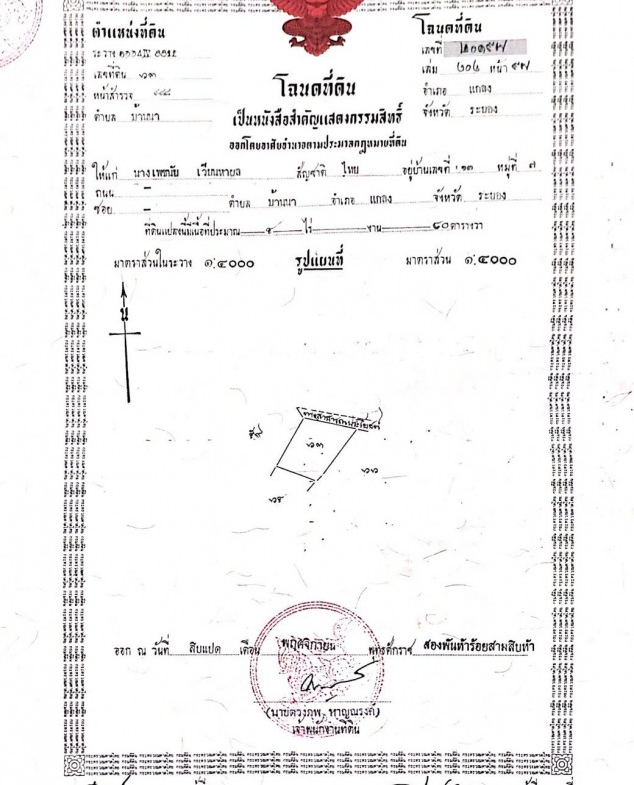 ตำแหน่งที่ดิน
ระวาง
เลขที่ดิน ๖๓
หน้าสำรวจ
ตำบล บ้านนา
โฉนดที่ดิน
เลขที่ ๒๐๑๕๗
เล่ม ๒๐๒ หน้า ๕๗
อำเภอ แกลง
จังหวัด ระยอง
โฉนดที่ดิน
เป็นหนังสือสำคัญแสดงกรรมสิทธิ์
ออกโดยอาศัยอำนาจตามประมวลกฎหมายที่ดิน
ให้แก่ สัญชาติ ไทย อยู่บ้านเลขที่ หมู่ที่ ๗
ถนน – ตำบล บ้านนา อำเภอ แกลง จังหวัด ระยอง
ซอย –
ที่ดินแปลงนี้มีเนื้อที่ประมาณ ไร่ งาน ๘๐ ตารางวา
มาตราส่วนในระวาง ๑:๔๐๐๐ รูปแผนที่ มาตราส่วน ๑:๔๐๐๐
น
ทางสาธารณประโยชน์
๖๓
๖๖๖
๖๔
ออก ณ วันที่ สิบแปด เดือน พฤศจิกายน พุทธศักราช สองพันห้าร้อยสามสิบห้า
หาญณรงค์)
เจ้าพนักงานที่ดิน